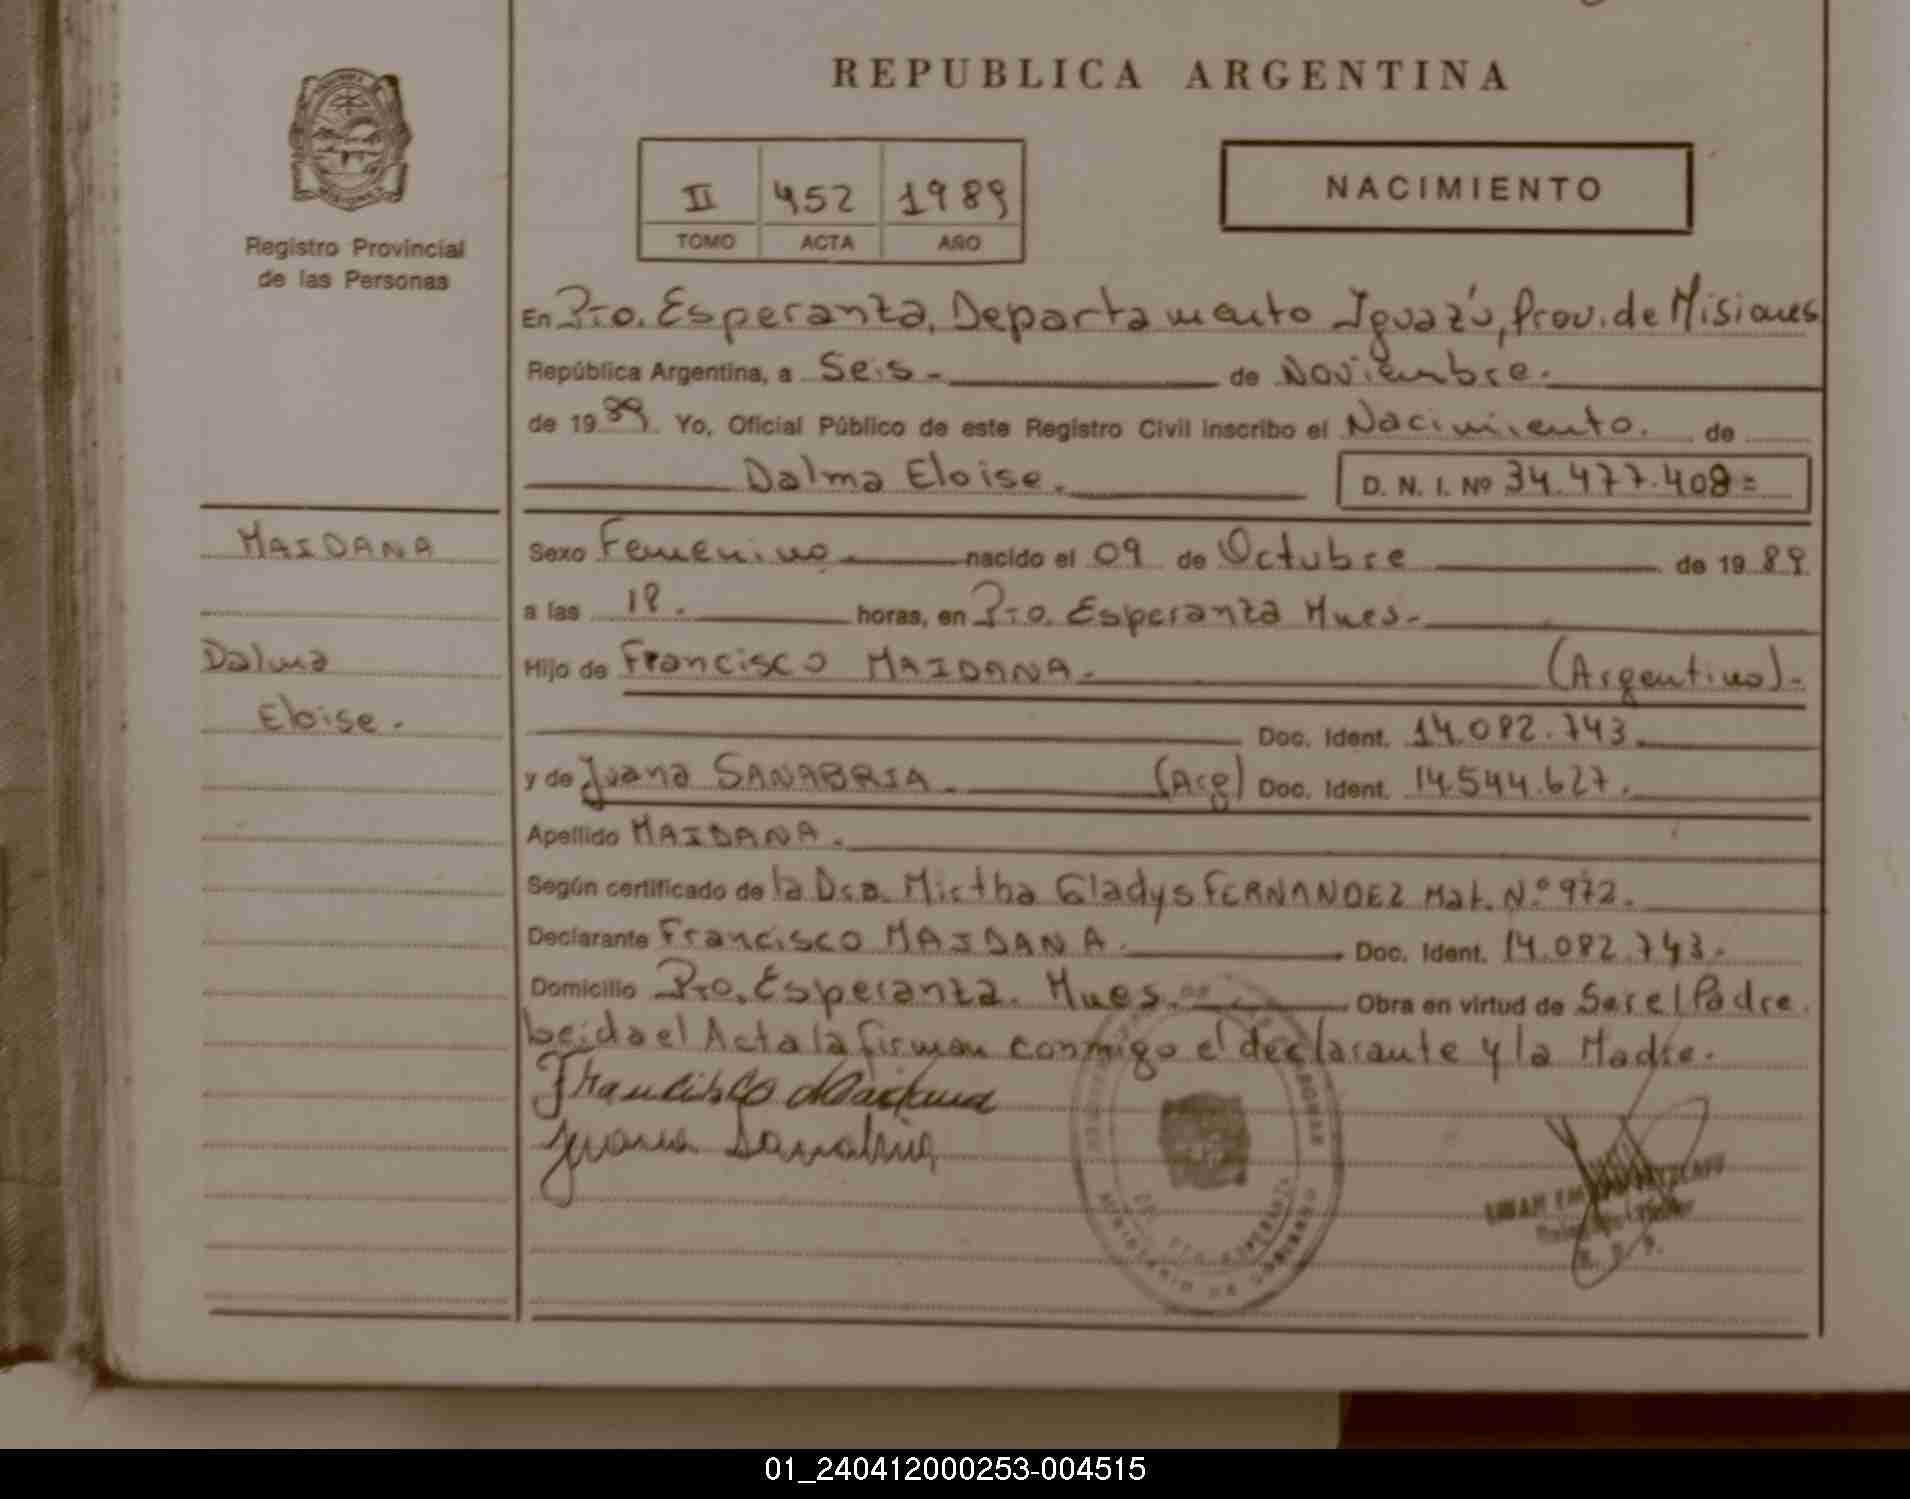 REPUBLICA ARGENTINA
II 452 1989
TOMO ACTA AÑO
NACIMIENTO
Registro Provincial
de las Personas
En Pto. Esperanza, Departamento Iguazú, Prov. de Misiones
República Argentina, a Seis.- de Noviembre.
de 1989. Yo, Oficial Público de este Registro Civil inscribo el Nacimiento. de
Dalma Eloise. D. N. I. Nº 34.477.409=
MAIDANA
Sexo Femenino nacido el 09 de Octubre de 1989
a las horas, en Pto. Esperanza Mnes.-
Dalma
Hijo de Francisco MAIDANA.- (Argentino).-
Eloise.-
Doc. Ident. 14.082.743.
y de Juana SANABRIA.- (Arg) Doc. Ident. 14.544.627.
Apellido MAIDANA.
Según certificado de la Dra. Mirtha Gladys FERNANDEZ Mat. N.º 972.
Declarante Francisco MAIDANA. Doc. Ident. 14.082.743.-
Domicilio Pto. Esperanza. Mnes. Obra en virtud de Ser el Padre.
Leida el Acta la firman conmigo el declarante y la Madre.
Francisco Maidana
Juana Sanabria
MINISTERIO DE GOBIERNO
PTO. ESPERANZA
01_240412000253-004515